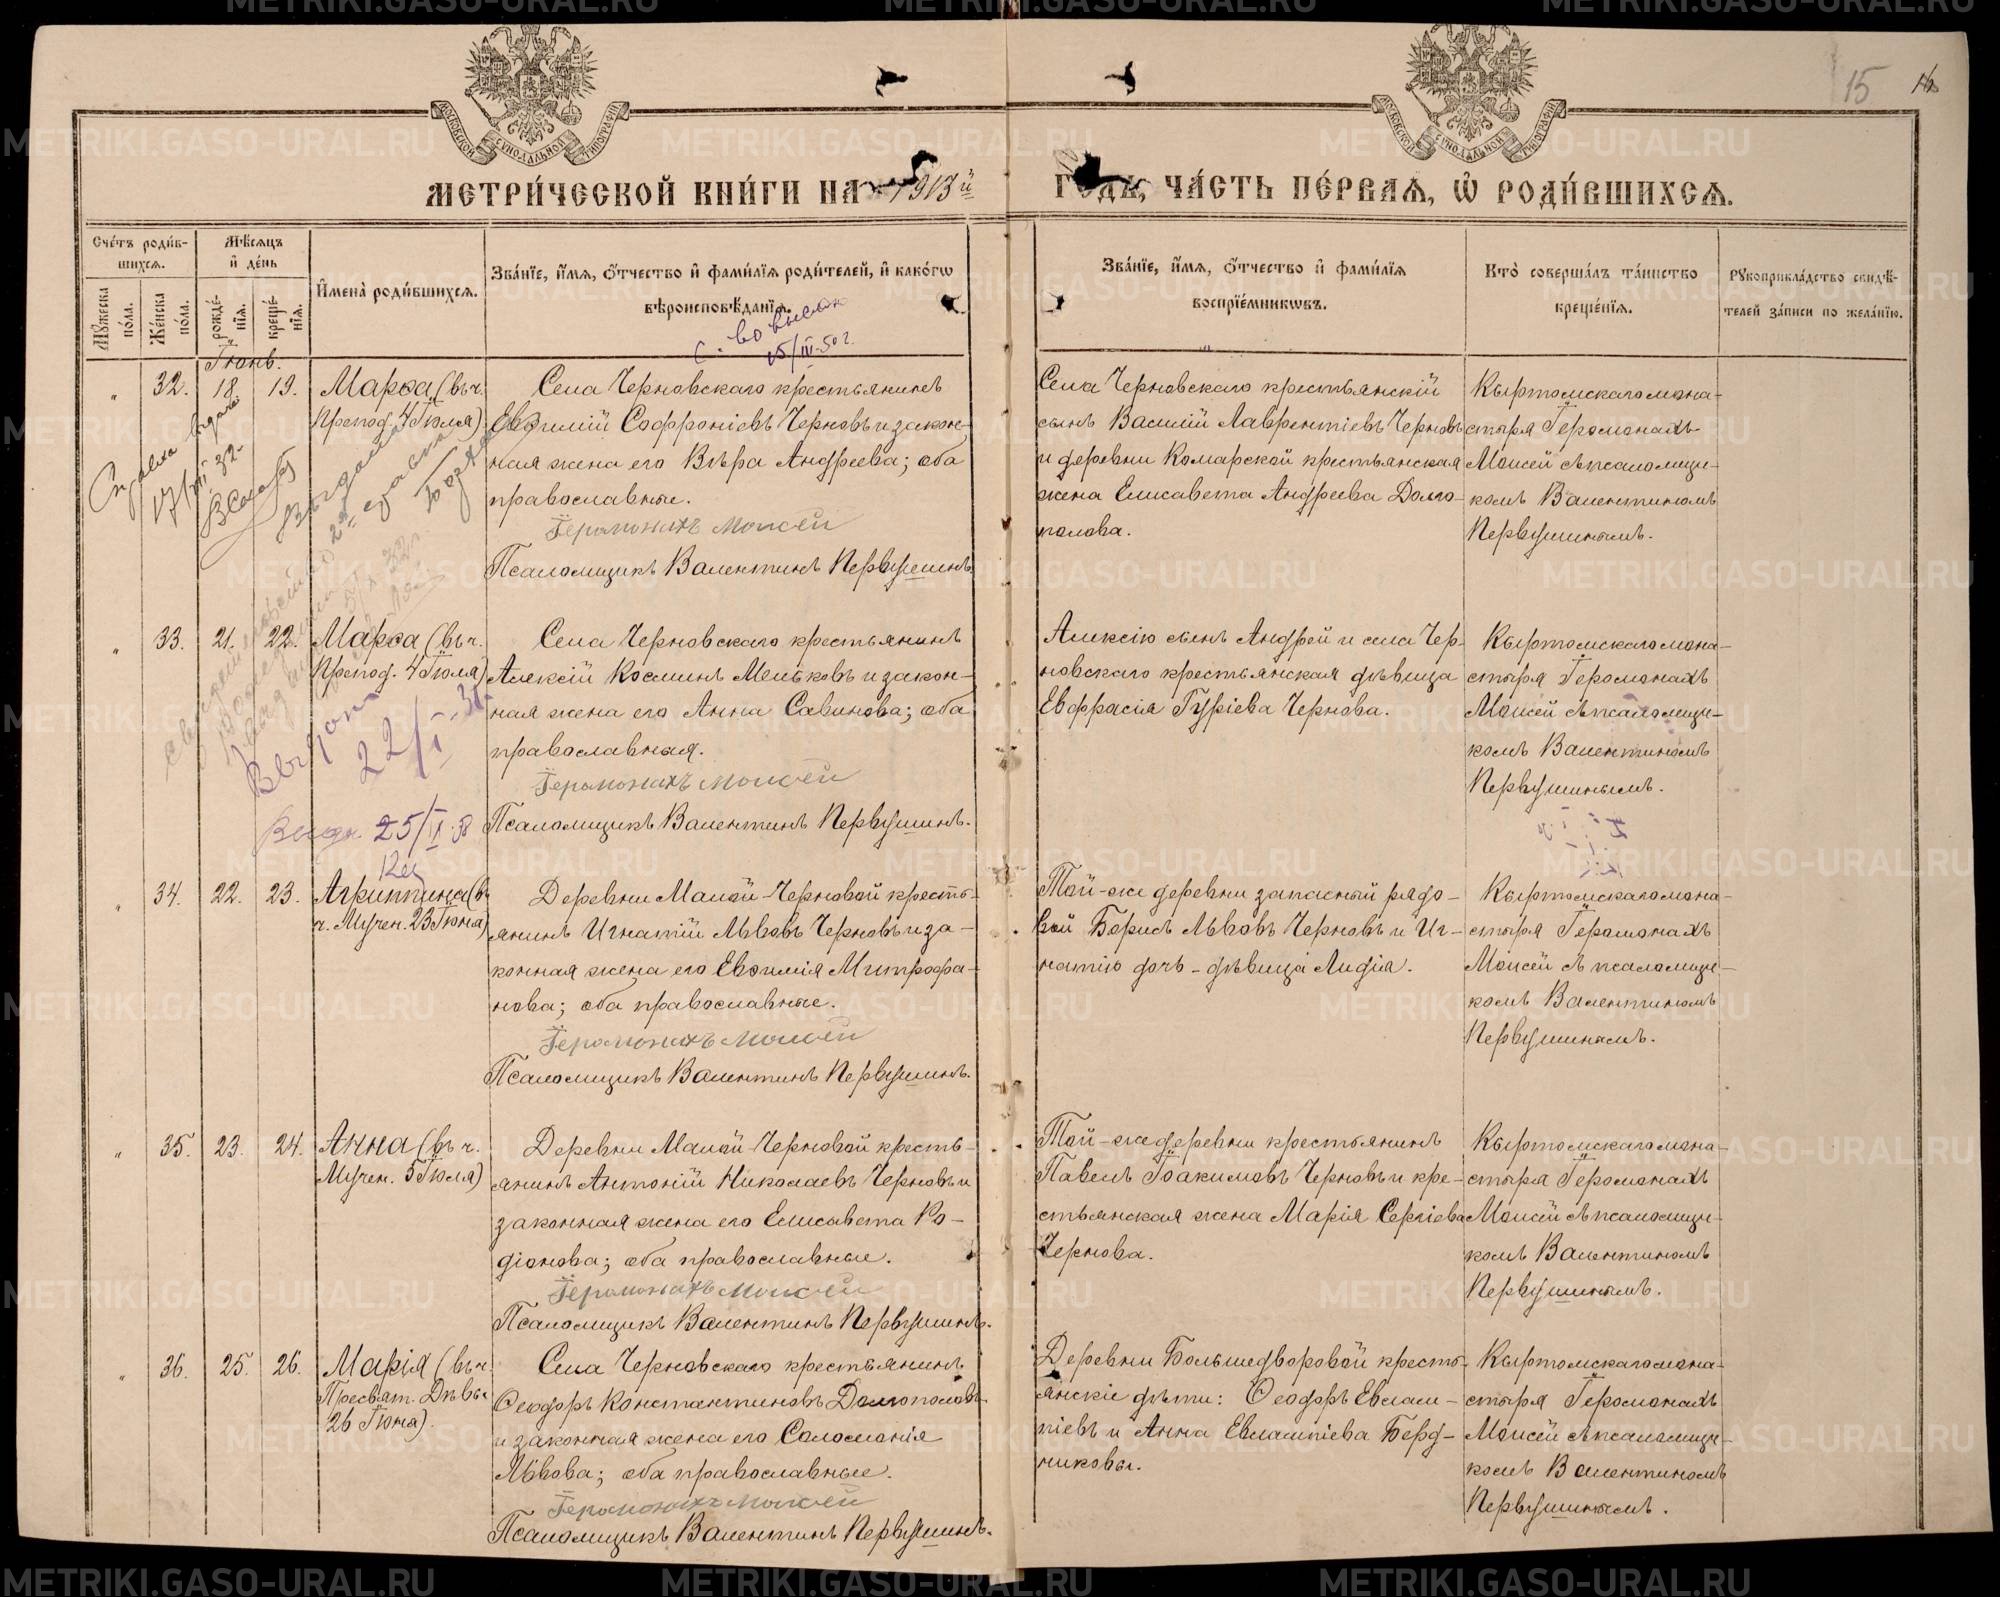 МОСКОВСКОЙ СѴНОДАЛЬНОЙ ТИПОГРАФІИ
МОСКОВСКОЙ СѴНОДАЛЬНОЙ ТИПОГРАФІИ
15
МЕТРИ́ЧЕСКОЙ КНИ́ГИ НА 1913й ГОДЪ, ЧА́СТЬ ПЕ́РВАѦ, Ѡ҆ РОДИ́ВШИХСѦ.
Сче́тъ роди́в-
шихсѧ.
Мꙋ́жеска по́ла.
Же́нска по́ла.
Мѣ́сѧцъ
и҆ де́нь
рожде́-
нїѧ.
креще́-
нїѧ.
И҆мена̀ роди́вшихсѧ.
Зва́нїе, и҆́мѧ, ѻ҆́тчество и҆ фами́лїѧ роди́телей, и҆ како́гѡ
вѣроисповѣ́данїѧ.
Зва́нїе, и҆́мѧ, ѻ҆́тчество и҆ фами́лїѧ
воспрїе́мникѡвъ.
Кто̀ соверша́лъ та́инство
креще́нїѧ.
Рꙋкоприкла́дство свидѣ́-
телей за́писи по жела́нїю.
15/III-50 г.
Іюнь.
" 32. 18. 19.
Марѳа (въ ч.
Препод. 4 Іюля)
Села Черновскаго крестьянинъ
Евѳимій Софроніевъ Черновъ и закон-
ная жена его Вѣра Андреева; оба
православные.
Іеромонахъ Моисей
Псаломщикъ Валентинъ Первушинъ.
Села Черновскаго крестьянскій
сынъ Василій Лаврентіевъ Черновъ
и деревни Комарской крестьянская
жена Елисавета Андреева Долго-
полова.
Кыртомскаго мона-
стыря Іеромонахъ
Моисей съ псаломщи-
комъ Валентиномъ
Первушинымъ.
Справка выдана
" 33. 21. 22.
Марѳа (въ ч.
Препод. 4 Іюля)
Села Черновскаго крестьянинъ
Алексій Косминъ Мельковъ и закон-
ная жена его Анна Савинова; оба
православная.
Іеромонахъ Моисей
Псаломщикъ Валентинъ Первушинъ.
Алексію сынъ Андрей и села Чер-
новскаго крестьянская дѣвица
Евфрасія Гуріева Чернова.
Кыртомскаго мона-
стыря Іеромонахъ
Моисей съ псаломщи-
комъ Валентиномъ
Первушинымъ.
Выдано
25/IX-38
" 34. 22. 23.
Агриппина (въ
ч. Мучен. 23 Іюня)
Деревни Малой-Черновой кресть-
янинъ Игнатій Львовъ Черновъ и за-
конная жена его Евѳимія Митрофа-
нова; оба православные.
Іеромонахъ Моисей
Псаломщикъ Валентинъ Первушинъ.
Той-же деревни запасный рядо-
вой Борисъ Львовъ Черновъ и Иг-
натію дочь-дѣвица Лидія.
Кыртомскаго мона-
стыря Іеромонахъ
Моисей съ псаломщи-
комъ Валентиномъ
Первушинымъ.
" 35. 23. 24.
Анна (въ ч.
Мучен. 5 Іюля)
Деревни Малой-Черновой кресть-
янинъ Антоній Николаевъ Черновъ и
законная жена его Елисавета Ро-
діонова; оба православные.
Іеромонахъ Моисей
Псаломщикъ Валентинъ Первушинъ.
Той-же деревни крестьянинъ
Павелъ Іоакимовъ Черновъ и кре-
стьянская жена Марія Сергіева
Чернова.
Кыртомскаго мона-
стыря Іеромонахъ
Моисей съ псаломщи-
комъ Валентиномъ
Первушинымъ.
" 36. 25. 26.
Марія (въ ч.
Пресвят. Дѣвы
26 Іюня).
Села Черновскаго крестьянинъ
Ѳеодоръ Константиновъ Долгополовъ
и законная жена его Соломонія
Львова; оба православные.
Іеромонахъ Моисей
Псаломщикъ Валентинъ Первушинъ.
Деревни Большедворовой кресть-
янскіе дѣти: Ѳеодоръ Евлам-
піевъ и Анна Евлампіева Берд-
никовы.
Кыртомскаго мона-
стыря Іеромонахъ
Моисей съ псаломщи-
комъ Валентиномъ
Первушинымъ.
METRIKI.GASO-URAL.RU